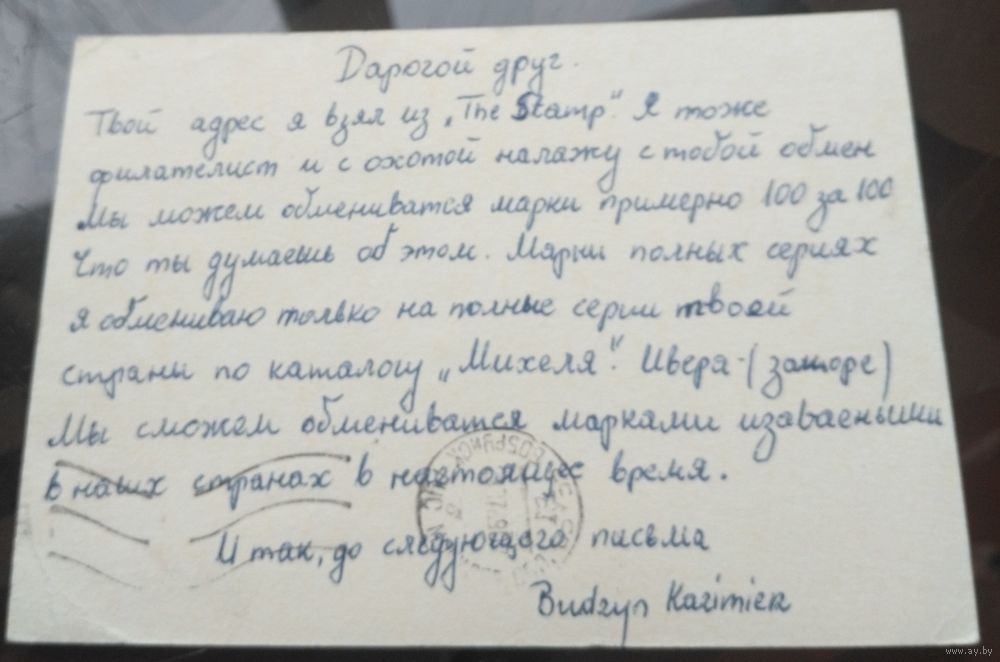 Дарогой друг.
Твой адрес я взял из „The Stamp". Я тоже
филателист и с охотой налажу с тобой обмен
Мы можем обмениватся марки примерно 100 за 100
Что ты думаешь об этом. Марки полных сериях
я обмениваю только на полные серии твоей
страны по каталогу „Михеля". Ивера-(
Мы сможем обмениватся марками
в наших странах в настоящее время.
И так, до следующего письма
Budzyn Kazimierz
БОБРУЙСК
www.ay.by